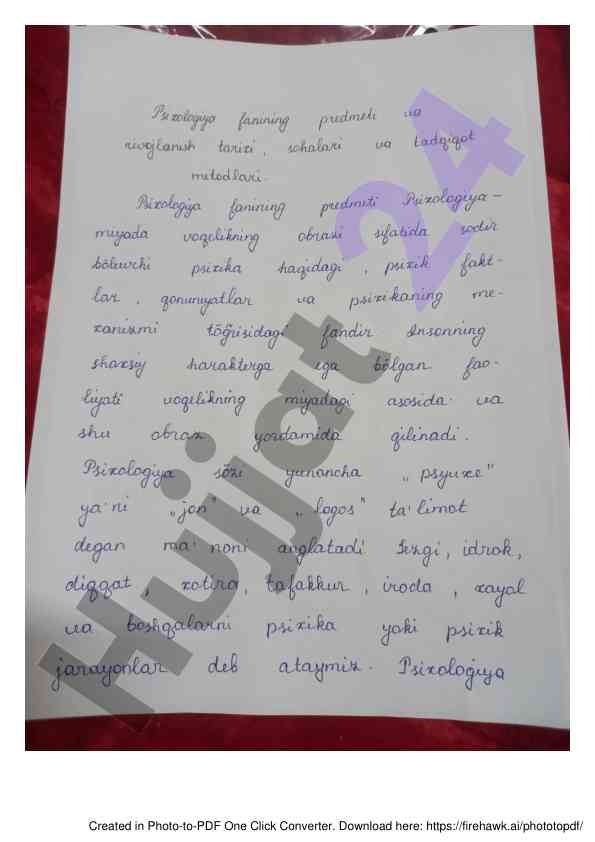 Psixologiya fanining predmeti va
rivojlanish tarixi, sohalari va tadqiqot
metodlari.
Psixologiya fanining predmeti Psixologiya-
miyada voqelikning obrazi sifatida sodir
bõluvchi psixika haqidagi, psixik fakt-
lar, qonuniyatlar va psixikaning me-
xanizmi tõğrisidagi fandir Insonning
shaxsiy harakterga ega bõlgan fao-
liyati voqelikning miyadagi asosida va
shu obraz yordamida qilinadi.
Psixologiya sõzi yunancha „psyuxe"
ya'ni „jon" va „logos" ta'limot
degan ma'noni anglatadi Sezgi, idrok,
diqqat, xotira, tafakkur, iroda, xayal
va boshqalarni psixika yoki psixik
jarayonlar deb ataymiz. Psixologiya
Hujjat 24
Created in Photo-to-PDF One Click Converter. Download here: https://firehawk.ai/phototopdf/